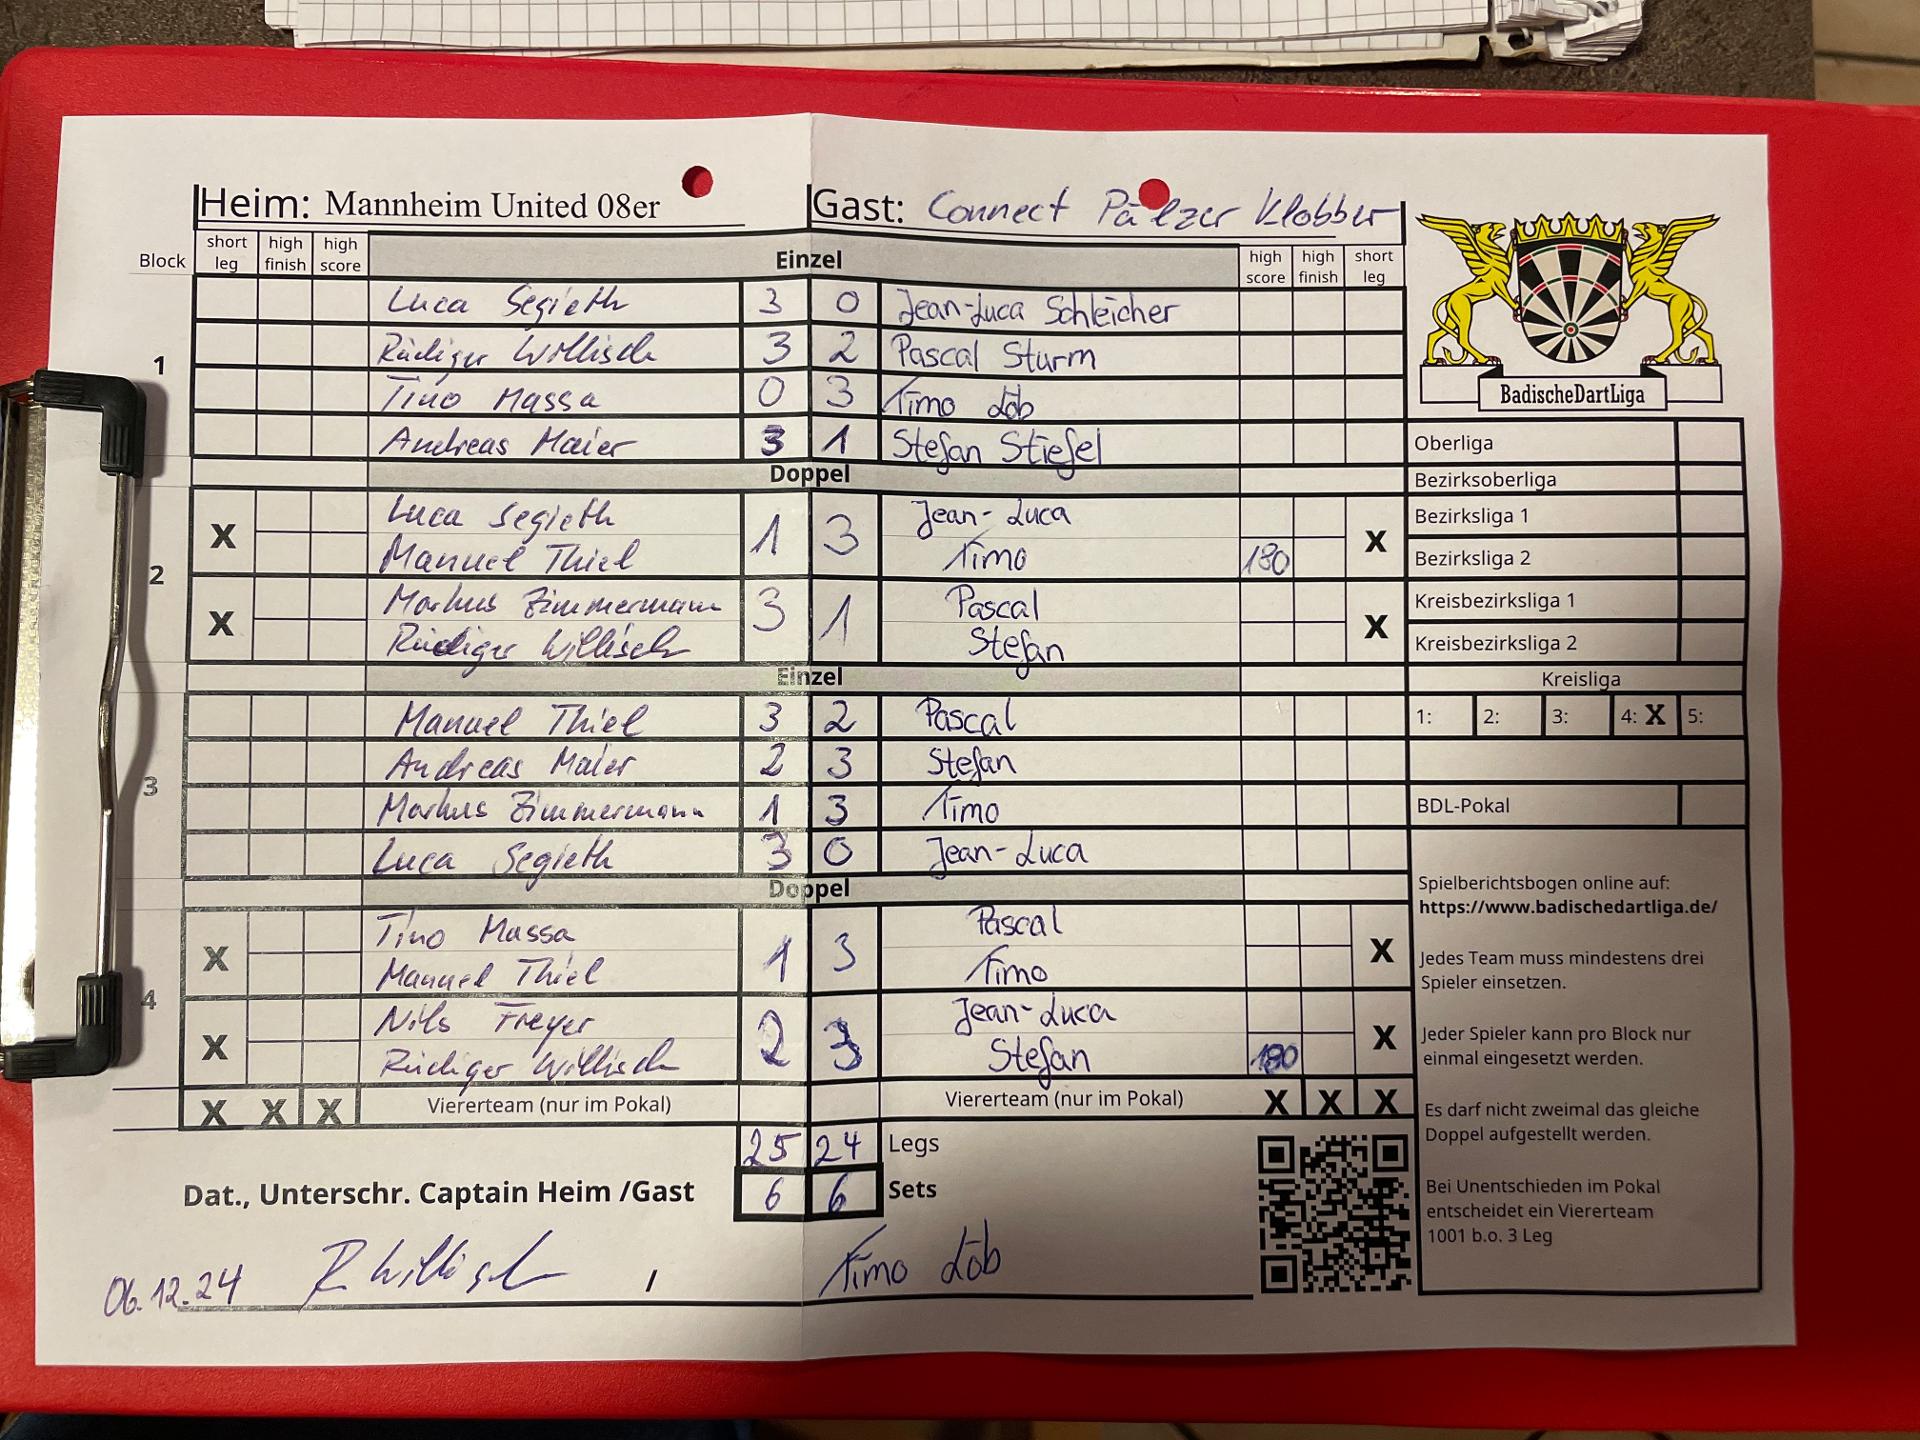 Heim: Mannheim United 08er Gast: Connect Pälzer Klobber
Block short leg high finish high score Einzel high score high finish short leg
BadischeDartLiga
1
Luca Segieth 3 0 Jean-Luca Schleicher
Rüdiger Willisch 3 2 Pascal Sturm
Tino Massa 0 3 Timo Löb
Andreas Maier 3 1 Stefan Stiefel
Doppel
2
X Luca Segieth 1 3 Jean-Luca X
Manuel Thiel Timo 180
X Markus Zimmermann 3 1 Pascal X
Rüdiger Willisch Stefan
Einzel
3
Manuel Thiel 3 2 Pascal
Andreas Maier 2 3 Stefan
Markus Zimmermann 1 3 Timo
Luca Segieth 3 0 Jean-Luca
Doppel
4
X Tino Massa 1 3 Pascal X
Manuel Thiel Timo
X Nils Freyer 2 3 Jean-Luca X
Rüdiger Willisch Stefan 180
X X X Viererteam (nur im Pokal) Viererteam (nur im Pokal) X X X
25 24 Legs
Dat., Unterschr. Captain Heim /Gast 6 6 Sets
06.12.24 R Willisch / Timo Löb
Oberliga
Bezirksoberliga
Bezirksliga 1
Bezirksliga 2
Kreisbezirksliga 1
Kreisbezirksliga 2
Kreisliga
1: 2: 3: 4: X 5:
BDL-Pokal
Spielberichtsbogen online auf:
https://www.badischedartliga.de/
Jedes Team muss mindestens drei
Spieler einsetzen.
Jeder Spieler kann pro Block nur
einmal eingesetzt werden.
Es darf nicht zweimal das gleiche
Doppel aufgestellt werden.
Bei Unentschieden im Pokal
entscheidet ein Viererteam
1001 b.o. 3 Leg